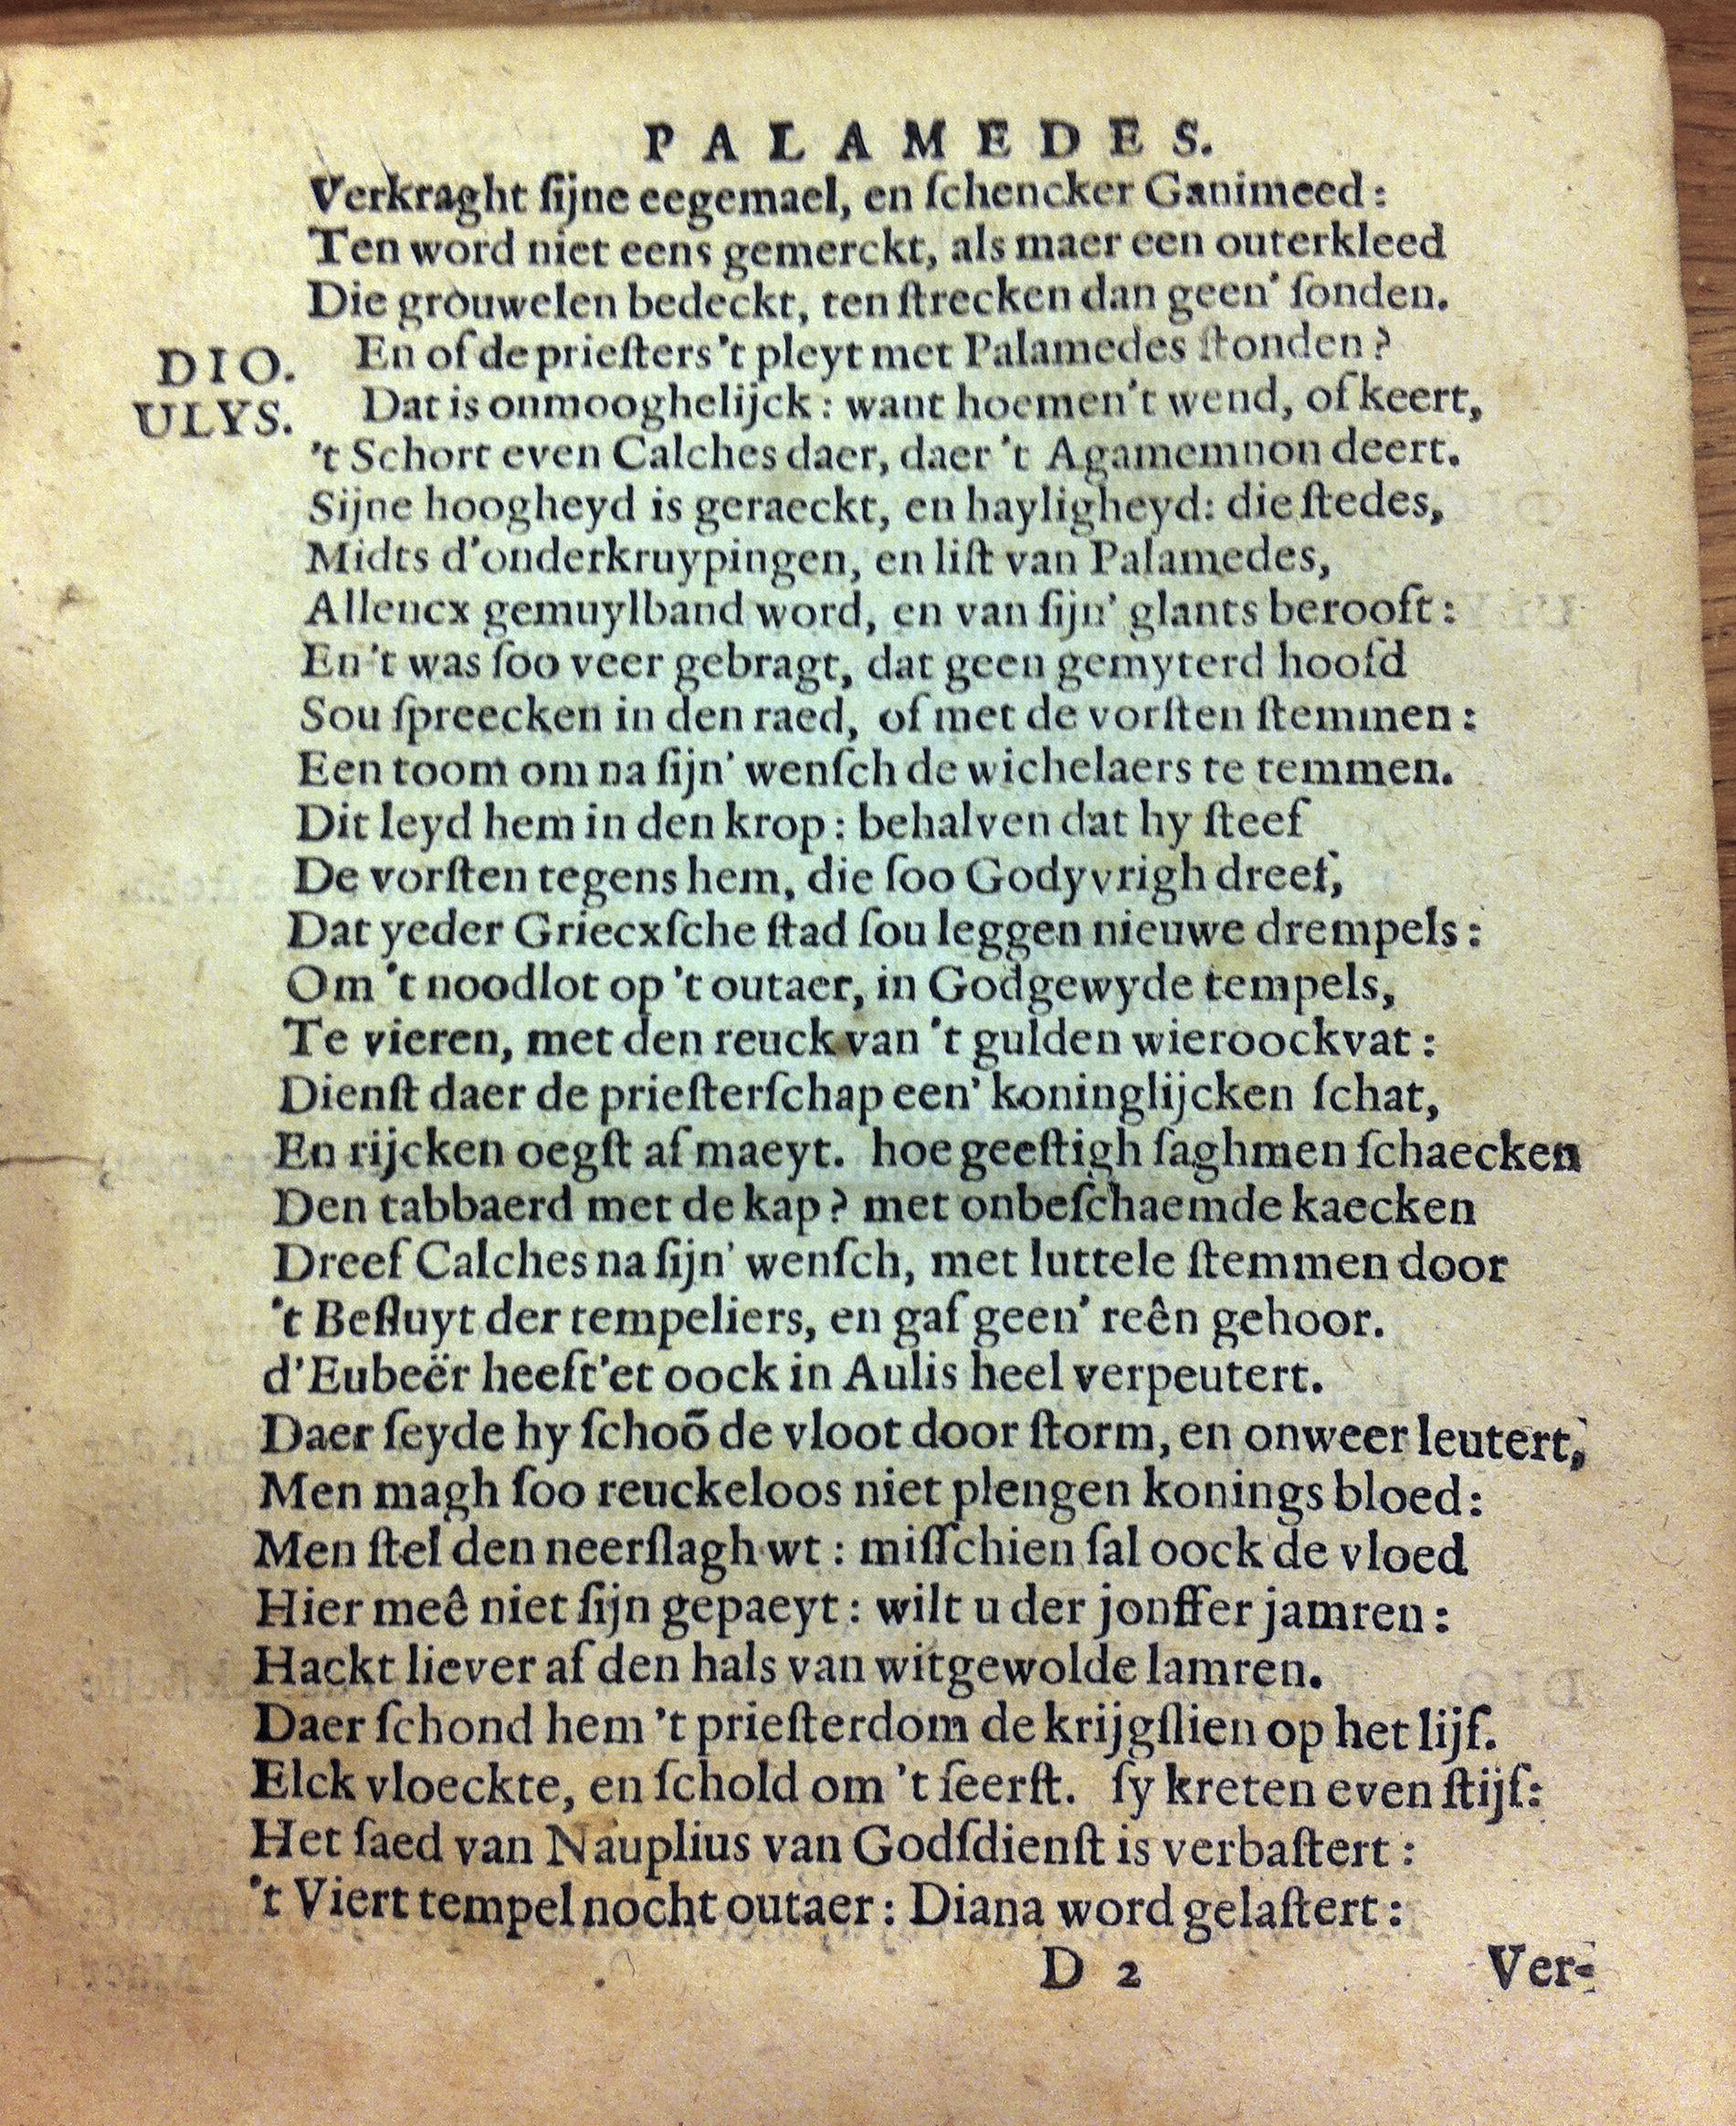 PALAMEDES.
Verkraght ſijne eegemael, en ſchencker Ganimeed:
Ten word niet eens gemerckt, als maer een outerkleed
Die grouwelen bedeckt, ten ſtrecken dan geen' ſonden.
DIO. En of de prieſters 't pleyt met Palamedes ſtonden?
ULYS. Dat is onmooghelijck: want hoemen't wend, of keert,
't Schort even Calches daer, daer 't Agamemnon deert.
Sijne hoogheyd is geraeckt, en hayligheyd: die ſtedes,
Midts d'onderkruypingen, en liſt van Palamedes,
Allencx gemuylband word, en van ſijn' glants berooft:
En 't was ſoo veer gebragt, dat geen gemyterd hoofd
Sou ſpreecken in den raed, of met de vorſten ſtemmen:
Een toom om na ſijn' wenſch de wichelaers te temmen.
Dit leyd hem in den krop: behalven dat hy ſteef
De vorſten tegens hem, die ſoo Godyvrigh dreef,
Dat yeder Griecxſche ſtad ſou leggen nieuwe drempels:
Om 't noodlot op 't outaer, in Godgewyde tempels,
Te vieren, met den reuck van 't gulden wieroockvat:
Dienſt daer de prieſterſchap een' koninglijcken ſchat,
En rijcken oegſt af maeyt. hoe geeſtigh ſaghmen ſchaecken
Den tabbaerd met de kap? met onbeſchaemde kaecken
Dreef Calches na ſijn' wenſch, met luttele ſtemmen door
't Beſluyt der tempeliers, en gaf geen' reên gehoor.
d'Eubeër heeft'et oock in Aulis heel verpeutert.
Daer ſeyde hy ſchoõ de vloot door ſtorm, en onweer leutert,
Men magh ſoo reuckeloos niet plengen konings bloed:
Men ſtel den neerſlagh wt: miſſchien ſal oock de vloed
Hier meê niet ſijn gepaeyt: wilt u der jonffer jamren:
Hackt liever af den hals van witgewolde lamren.
Daer ſchond hem 't prieſterdom de krijgſlien op het lijf.
Elck vloeckte, en ſchold om 't ſeerſt. ſy kreten even ſtijf:
Het ſaed van Nauplius van Godſdienſt is verbaſtert:
't Viert tempel nocht outaer: Diana word gelaſtert:
D 2 Ver-